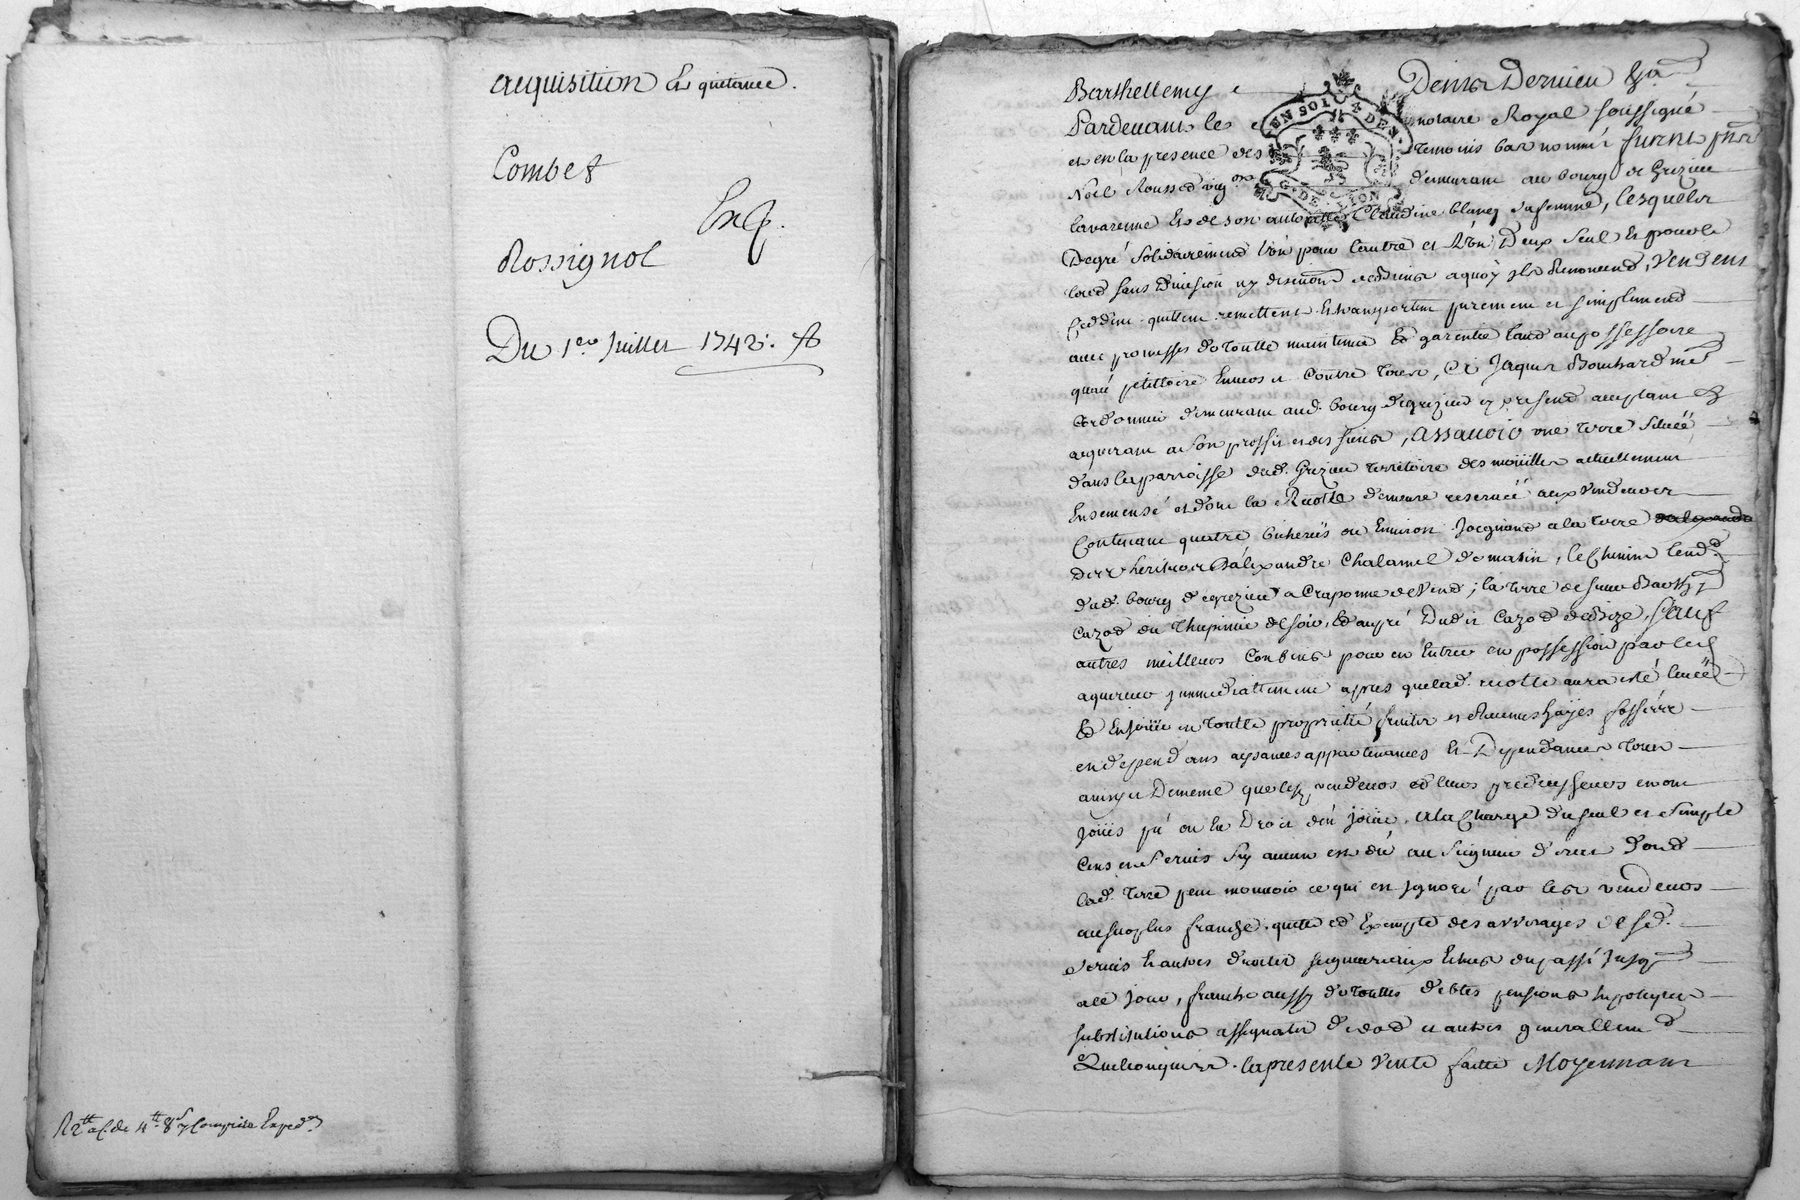 acquisition Et quitance.
Combet
Enq.
Rossignol
Du 1er Juillet 1742.
R 12tt de 4tt 8s y Compris Exped.on
Barthellemy Denis Dervieu
EN SOL 4 DEN.
G. DE LYON
Pardevant le notaire Royal soussigné
et en la presence des temoins bas nommés furent pnts
Noel Rousset vig.on demeurant au bourg de Grezieu
lavarenne Et de son autorité Claudine blanc sa femme, lesquels
Degré solidairement l'un pour l'autre et L'un Deux seul Et pour le
tout sans Division ny discution aquoy ils Renoncent, Vendent
Ceddent quittent remettent Et transportent purement et simplement
avec promesses de Toutte maintenue Et garentie tant au possessoire
quau petittoire Envers et Contre Tous, A Jaques Bouchard me
Cordonnier demeurant aud. bourg de grezieu cy present acceptant Et
aquerant a son proffit et des siens, Assavoir une Terre Scituëë
dans la parroisse dud. Grezieu territoire des mouilles actuellement
Ensemensé et dont la Recolte demeure reservéé aux Vendeurs
Contenant quatre bicherées ou Environ Joignant a la Terre
Des heritiers D'alexandre Chalamel de matin, le Chemin tend.t
dud. bourg de grezieu a Craponne de Vend; la Terre de
Cazot du Thupinie de soir, Et du pré Dudit Cazot de Bize, sauf
autres meilleurs Confins pour en Entrer en possession par led
aquereur immediattement apres que lad. recolte aura été levéë
Et En Joüir en Toutte proprietté fruits et Revenus hayes fosses
en dependans aysances appartenances Et Dependances Tout
ainsy et De meme que les vendeurs et leurs predecesseurs en ont
Joüis pû ou Eu Droit d'en joüir, A la Charge du seul et simple
Cens et servis sy aucun est dû au seigneur direct dont
lad. Terre peut mouvoir ce qui est Ignoré par lesd vendeurs
au surplus franche quitte et Exempte des arrerages desd.
servis Et autres droits seigneuriaux Echus du passé Jusqu
a ce jour, franche aussy de Touttes debtes pensions hypoteques
substitutions assignats de dot et autres generallement
Quelconques. la presente Vente faitte Moyennant